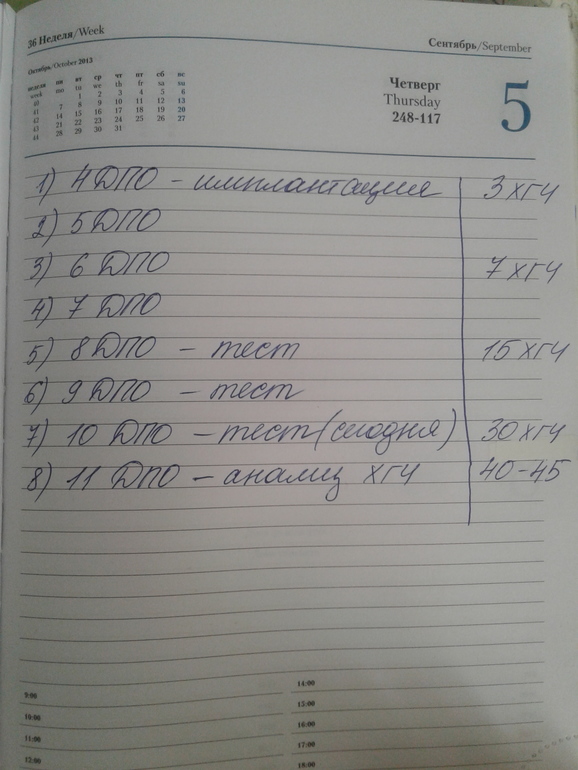 36 Неделя/Week
Сентябрь/September
Октябрь/October 2013
неделя пн вт ср чт пт сб вс
week mo tu we th fr sa su
40 1 2 3 4 5 6
41 7 8 9 10 11 12 13
42 14 15 16 17 18 19 20
43 21 22 23 24 25 26 27
44 28 29 30 31
Четверг
Thursday
248-117
5
1) 4 ДПО - имплантация 3 ХГЧ
2) 5 ДПО
3) 6 ДПО 7 ХГЧ
4) 7 ДПО
5) 8 ДПО - тест 15 ХГЧ
6) 9 ДПО - тест
7) 10 ДПО - тест (сегодня) 30 ХГЧ
8) 11 ДПО - анализ ХГЧ 40-45
9:00
10:00
11:00
12:00
14:00
15:00
16:00
17:00
18:00